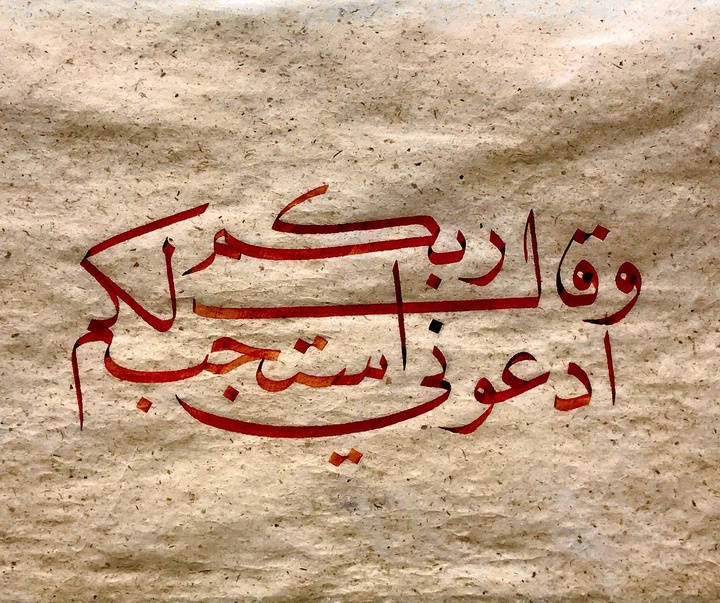 وقال ربكم
ادعوني استجب لكم